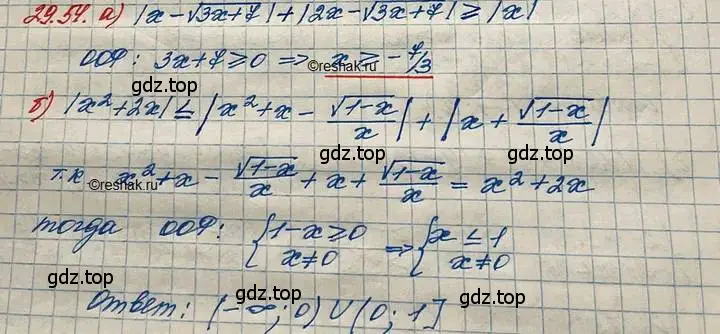 29.54. а) |x - √3x+7| + |2x - √3x+7| ≥ |x|
ООФ: 3x+7 ≥ 0 => x ≥ - 7/3
©reshak.ru
gdz.top
gdz.top
б) |x²+2x| ≤ |x²+x - √1-x/x| + |x + √1-x/x|
gdz.top
gdz.top
т.к x²+x - √1-x/x + x + √1-x/x = x²+2x
©reshak.ru
gdz.top
тогда ООФ: {1-x ≥ 0 => {x ≤ 1
x≠0 x≠0
gdz.top
gdz.top
Ответ: (-∞; 0) ∪ (0; 1]
gdz.top
gdz.top